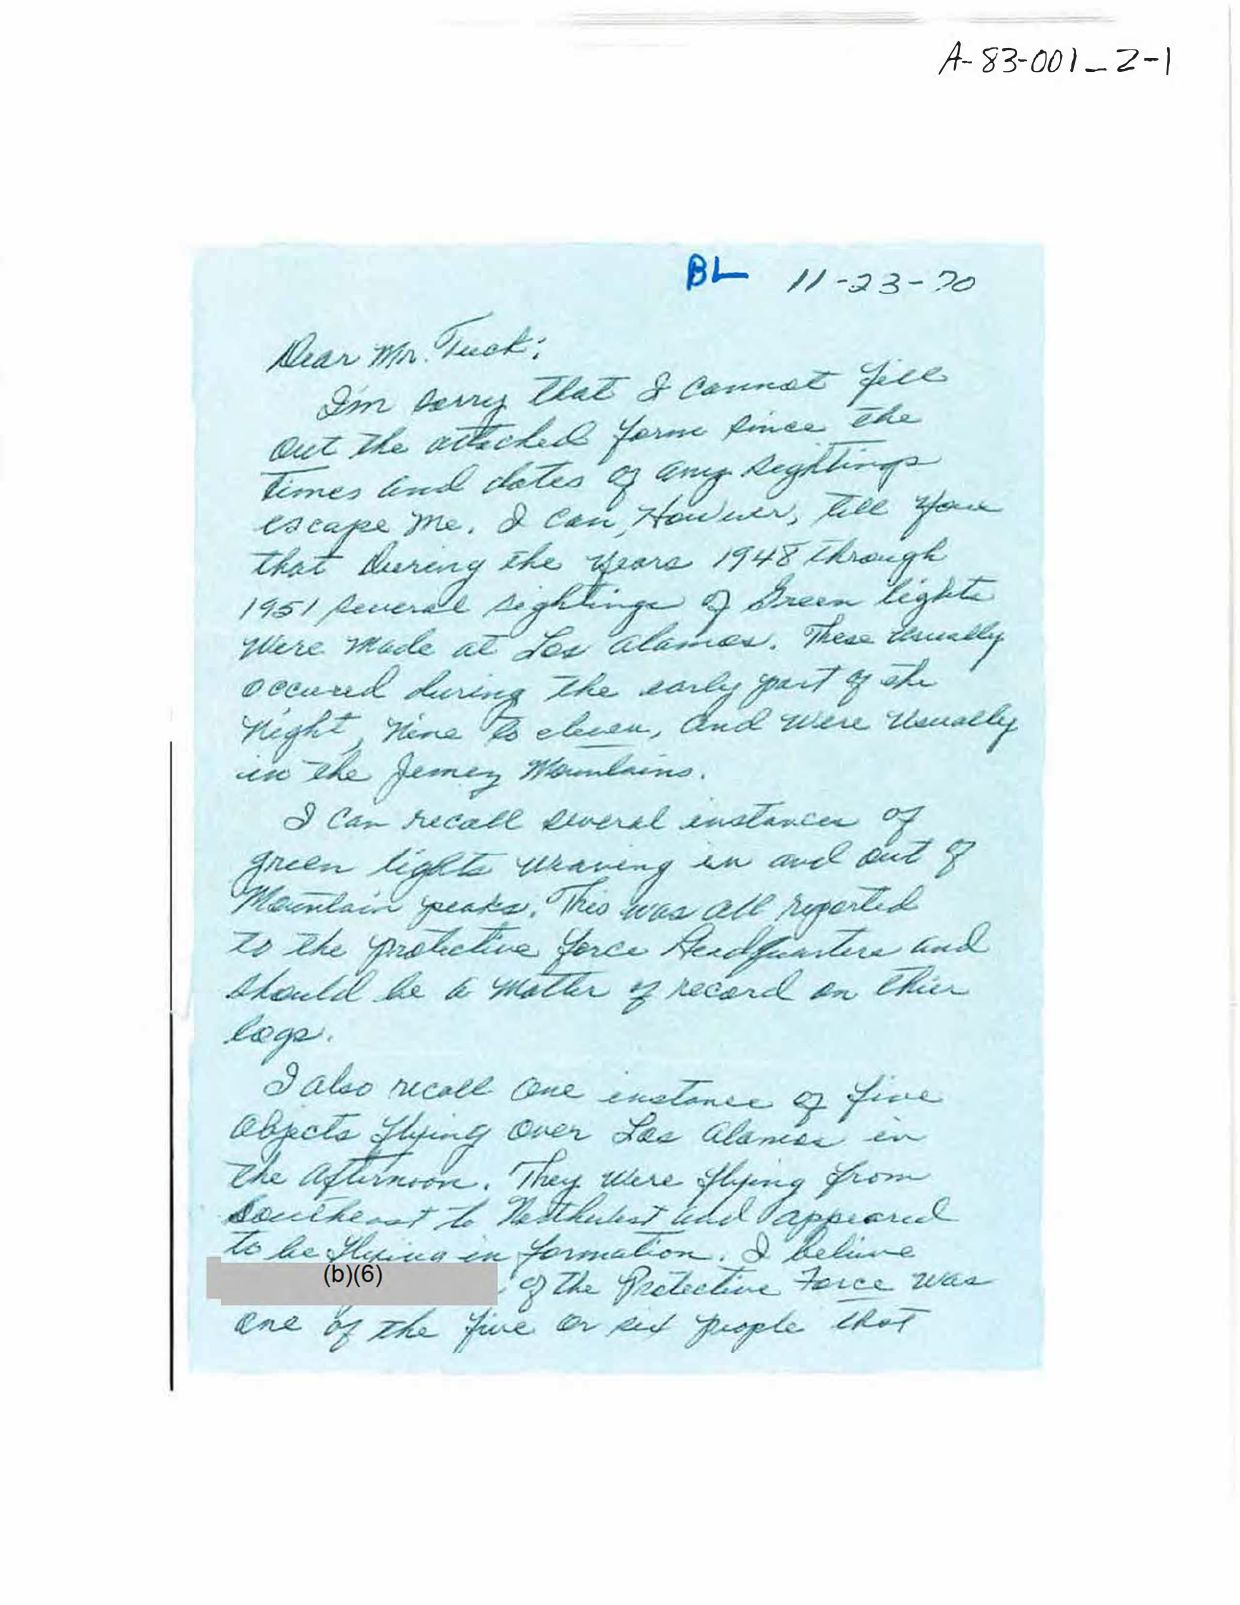 A-83-001_2-1
BL 11-23-70
Dear Mr. Tuck:
I'm sorry that I cannot fill
out the attached form since the
times and dates of any sightings
escape me. I can, However, tell you
that During the years 1948 through
1951 several sightings of Green lights
were made at Los Alamos. These usually
occured during the early part of the
Night, Nine to eleven, and were usually
in the Jemez Mountains.
I can recall several instances of
green lights weaving in and out of
Mountain peaks. This was all reported
to the protective force Headquarters and
should be a matter of record on thier
logs.
I also recall one instance of five
objects flying over Los Alamos in
the afternoon. They were flying from
Southeast to Northwest and appeared
to be flying in formation. I believe
(b)(6) of the Protective Force was
one of the five or six people that